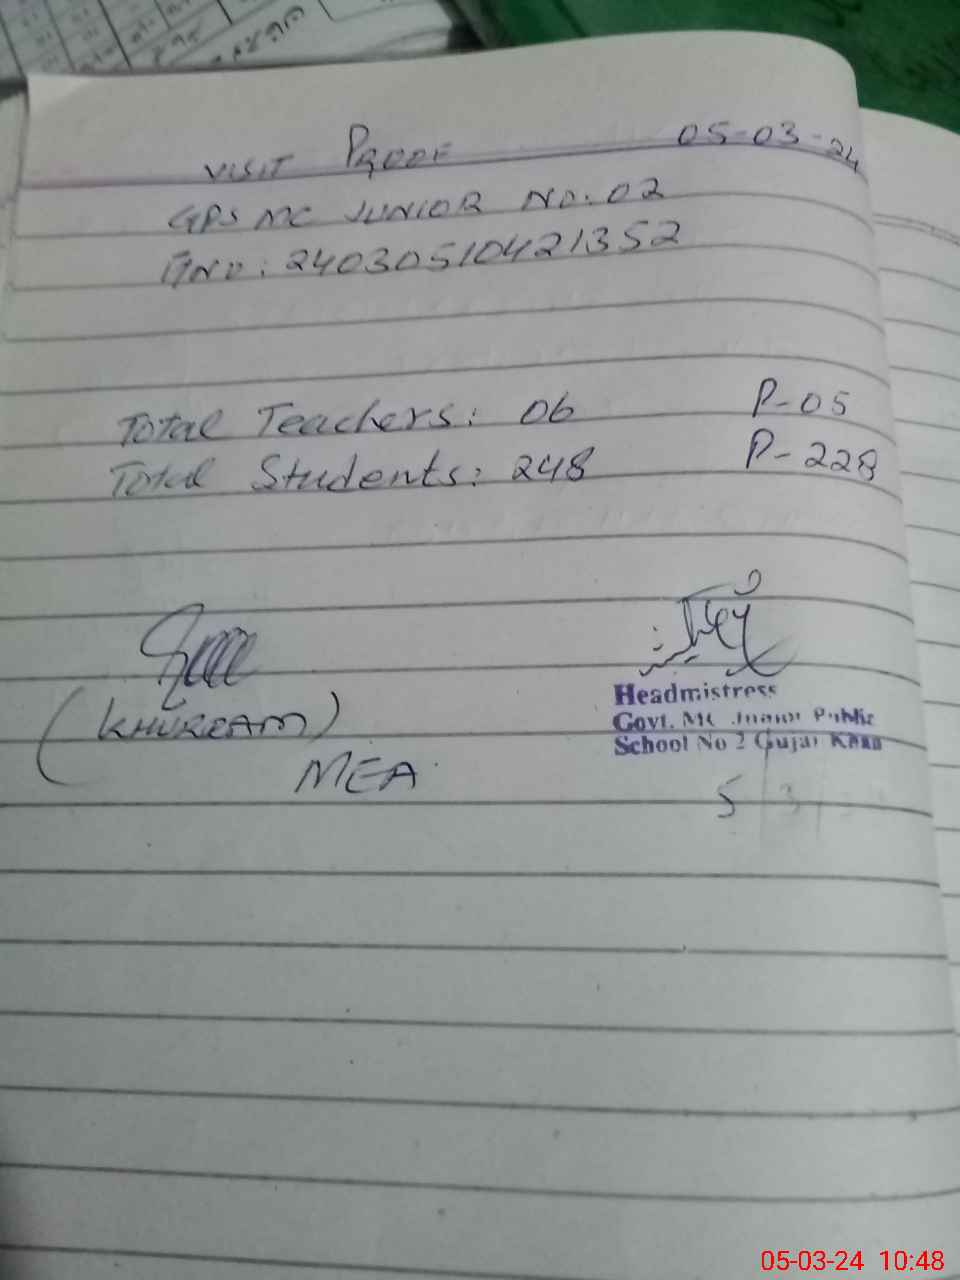 VISIT PROOF 05-03-24
GPS MC JUNIOR NO. 02
24030510421352
Total Teachers: 06 P-05
Total Students: 248 P-228
(KHURRAM)
MEA
Headmistress
Govt. MC Junior Public
School No 2 Gujar Khan
5/3/
05-03-24 10:48